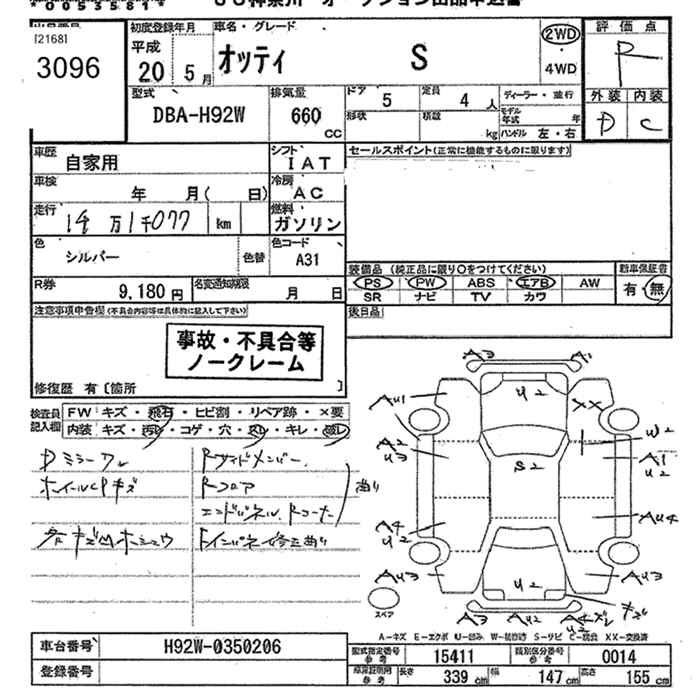 *00535814*
[2168]
3096
初度登録年月
平成
20 5月
車名・グレード
オッティ S
2WD
・
4WD
評価点
R
外装 内装
D C
型式
DBA-H92W
排気量
660
CC
ドア 5 定員 4 人
形状 積載 kg
ディーラー・並行
モデル年式 年
ハンドル 左・右
車歴 自家用
シフト IAT
セールスポイント(正常に機能するものに限ります)
車検 年 月( 日)
冷房 AC
走行 万1千077 km
燃料 ガソリン
色 シルバー 色替
色コード A31
装備品 (純正品に限り○をつけてください)
新車保証書
PS PW ABS エアB AW
SR ナビ TV カワ
有・無
R券 9,180円
名変通知期限 月 日
後日品
注意事項申告欄(不具合内容等は具体的に記入して下さい)
事故・不具合等
ノークレーム
修復歴 有〔箇所 〕
検査員
記入欄
FW キズ・飛石・ヒビ割・リペア跡・×要
内装 キズ・汚れ・コゲ・穴・スレ・キレ・
Dミラースレ
ホイールCPキズ
各キズ凹ホシュウ
Rサイドメンバー
Rフロア
エンドパネル、Rコーナー
曲り
Fインパネ修正曲り
A3 A1
AU1 U2 XX
A2 U3 W2
S2 A1 U2
A4 U2 AU4
AU3 U2 AU3
A3 AU2 A4 U2 キズ
スペア
A-キズ E-エクボ U-凹み W-補修跡 S-サビ C-腐食 XX-交換済
車台番号 H92W-0350206
登録番号
型式指定番号
参考
15411
類別区分番号
参考
0014
車庫証明用
参考
長さ 339 cm 幅 147 cm 高さ 155 cm